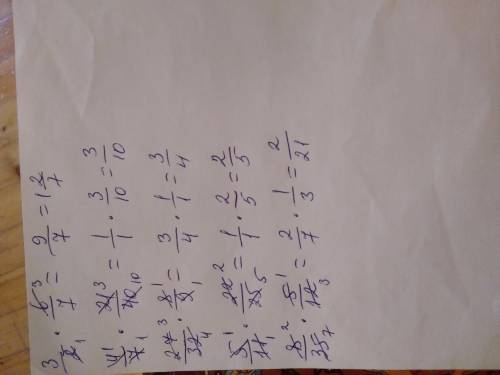 3/2₁ · 6³/7 = 9/7 = 1 2/7
4¹/7₁ · 21³/40₁₀ = 1/1 · 3/10 = 3/10
27³/32₄ · 8¹/9₁ = 3/4 · 1/1 = 3/4
5¹/11₁ · 22²/25₅ = 1/1 · 2/5 = 2/5
8²/35₇ · 5¹/12₃ = 2/7 · 1/3 = 2/21